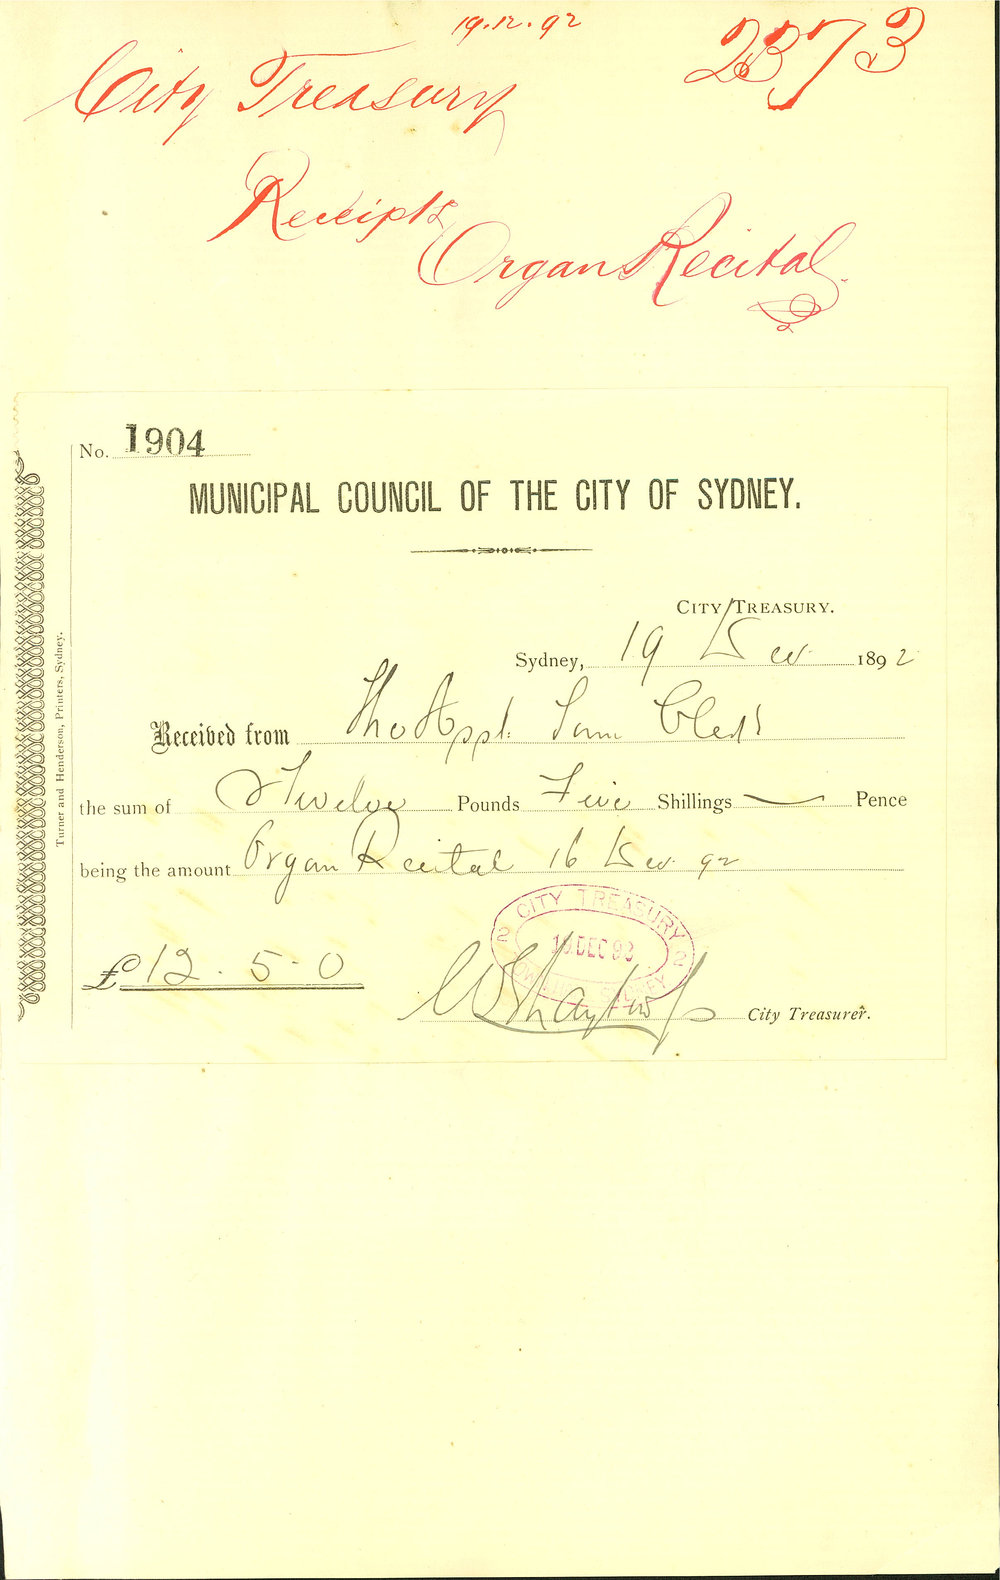 19.12.92
2373
City Treasury
Receipts
Organ Recital.
No. 1904
MUNICIPAL COUNCIL OF THE CITY OF SYDNEY.
CITY TREASURY.
Sydney, 19 Dec 1892
Received from The Asst. Town Clerk
the sum of Twelve Pounds Five Shillings — Pence
being the amount Organ Recital 16 Dec. 92
CITY TREASURY
2 19 DEC 93 2
TOWN HALL SYDNEY
£12.5.0
City Treasurer.
Turner and Henderson, Printers, Sydney.